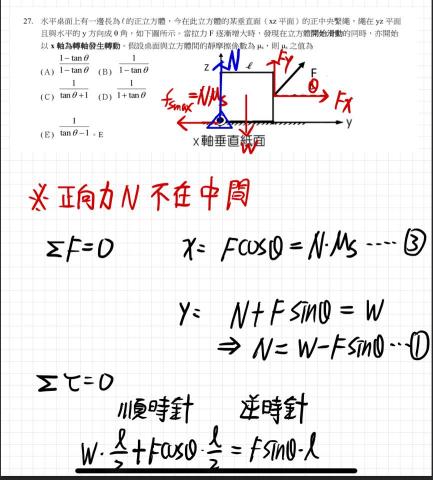 27. 水平桌面上有一邊長為 ℓ 的正立方體,今在此立方體的某垂直面(xz 平面)的正中央繫繩,繩在 yz 平面
且與水平的 y 方向成 θ 角,如下圖所示。當拉力 F 逐漸增大時,發現在立方體開始滑動的同時,亦開始
以 x 軸為轉軸發生轉動。假設桌面與立方體間的靜摩擦係數為 μs,則 μs 之值為
(A) (1-tan θ)/(1-tan θ) (B) 1/(1-tan θ)
(C) 1/(tan θ+1) (D) 1/(1+tan θ)
(E) 1/(tan θ-1)。E
z N ℓ Fy F
θ Fx
fsmax=Nμs
y
W
x 軸垂直紙面
※ 正向力 N 不在中間
ΣF=0 X= Fcosθ = N·μs ---- ③
Y= N+Fsinθ = W
⇒ N= W-Fsinθ --- ①
Στ=0
順時針 逆時針
W·ℓ/2+Fcosθ·ℓ/2 = Fsinθ·ℓ